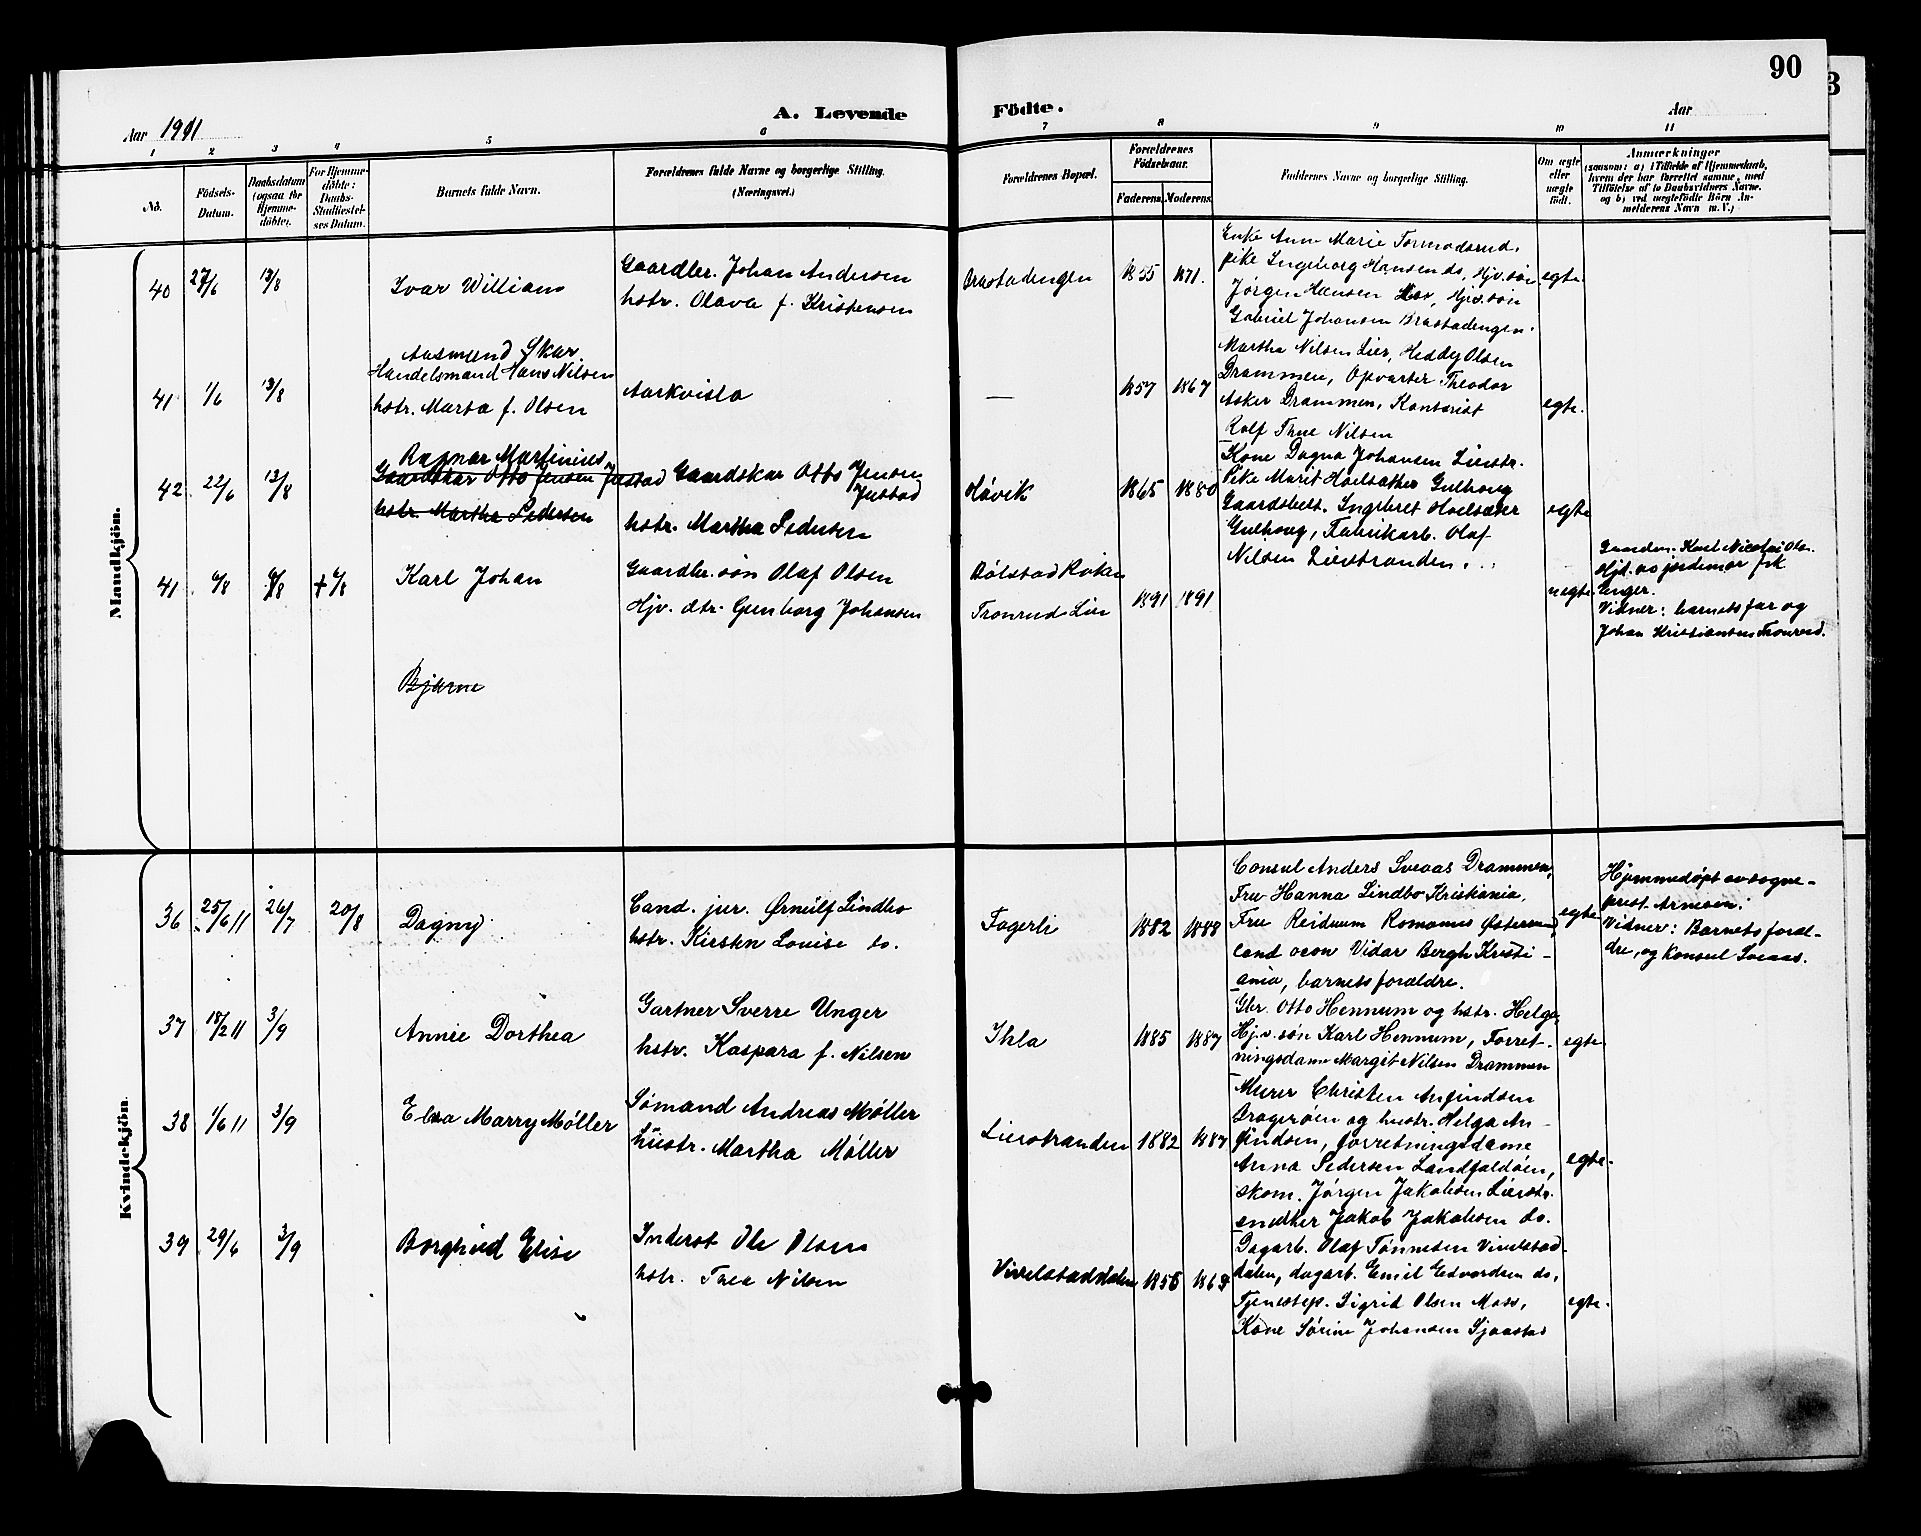 90
A. Levende Födte.
Aar 1911
Aar
1 2 3 4 5 6 7 8 9 10 11
No.
Födsels-
Datum.
Daabsdatum
(ogsaa for
Hjemme-
döbte).
For Hjemme-
döbte:
Daabs-
Stadfæstel-
ses Datum.
Barnets fulde Navn.
Forældrenes fulde Navne og borgerlige Stilling.
(Næringsvei.)
Forældrenes Bopæl.
Forældrenes
Födselsaar.
Faderens. Moderens.
Faddernes Navne og borgerlige Stilling.
Om ægte
eller
uægte
födt.
Anmærkninger
(saasom: a) i Tilfælde af Hjemmedaab,
hvem der har forrettet samme, med
Tilföielse af to Daabsvidners Navne,
og b) ved uægtefödte Börn An-
melderens Navn m. V.)
Mandkjön.
40 27/6 13/8
Ivar William
Gaardbr. Johan Andersen
hstr. Olava f. Kristensen
Brastadengen
1855 1871.
Enke Anne Marie Tormodsrud,
pike Ingeborg Hansen do, Hjv. søn
Jørgen Hansen, Hjv. søn
Gabriel Johansen Brastadengen.
egte
41 1/6 13/8
Aasmund Skar
Handelsmand Hans Nilsen
hstr. Marta f. Olsen
Aarkvisla
—
1857 1867
Martha Nilsen Lier, Heddy Olsen
Drammen, Opvarter Theodor
Asker Drammen, Kontorist
Rolf Thue Nilsen
egte.
42 22/6 13/8
Ragnar Martinius
Gaardskar Otto Jensen Justad
hstr. Martha Pedersen
Gaardskar Otto Jensen
Justad
hstr. Martha Pedersen
Høvik
1865 1880
Kone Dagna Johansen Lierstr.
Pike Marit Hoelsæther Gulhoug
Gaardsbest. Ingebret Hoelsæter
Gulhoug, Fabrikarb. Olaf
Nilsen Lierstranden.
egte
41 6/8 6/8 + 6/8
Karl Johan
Gaardbr. søn Olaf Olsen
Hjv. dtr. Gunborg Johansen
Bølstad Røken
Tronrud Lier
1891 1891
uegte
Hjd. av jordemor frk
Unger.
Vidner: barnets far og
Johan Kristiansen Tronrud.
Bjarne
Kvindekjön.
36 25/6 11 26/7 20/8
Dagny
Cand. jur. Ørnulf Lindbo
hstr. Kirsten Louise do.
Fagerli
1882 1888
Consul Anders Sveaas Drammen,
Fru Hanna Lindbo Kristiania,
Fru Reidunn Romanus Østersund,
Vidar Bergh Kristi-
ania, barnets forældre.
egte
Hjemmedøpt av sogne-
prest Arnesen.
Vidner: Barnets foræl-
dre, og Konsul Sveaas.
37 18/2 11 3/9
Annie Dorthea
Gartner Sverre Unger
hstr. Kaspara f. Nilsen
Ihla
1885 1887
Gbr. Otto Hennum og hstr. Helga,
Hjv. søn Karl Hennum, Forret-
ningsdame Margit Nilsen Drammen
egte
38 1/6 11 3/9
Elsa Marry Møller
Sømand Andreas Møller
hustr. Martha Møller
Lierstranden
1882 1887
Murer Christen Anfindsen
Dragerøen og hustr. Helga An-
findsen, forretningsdame
Anna Pedersen Landfaldøen,
skom. Jørgen Jakobsen Lierstr.
snedker Jakob Jakobsen do.
egte.
39 29/6 3/9
Borghild Elise
Inderst Ole Olsen
hstr. Thea Nilsen
Vivelstaddalen
1856 1864
Dagarb. Olaf Tønnesen Vivelstad-
dalen, dagarb. Emil Edvardsen do,
Tjenestep. Sigrid Olsen Moss,
Kone Sørine Johansen Sjaastad
egte.